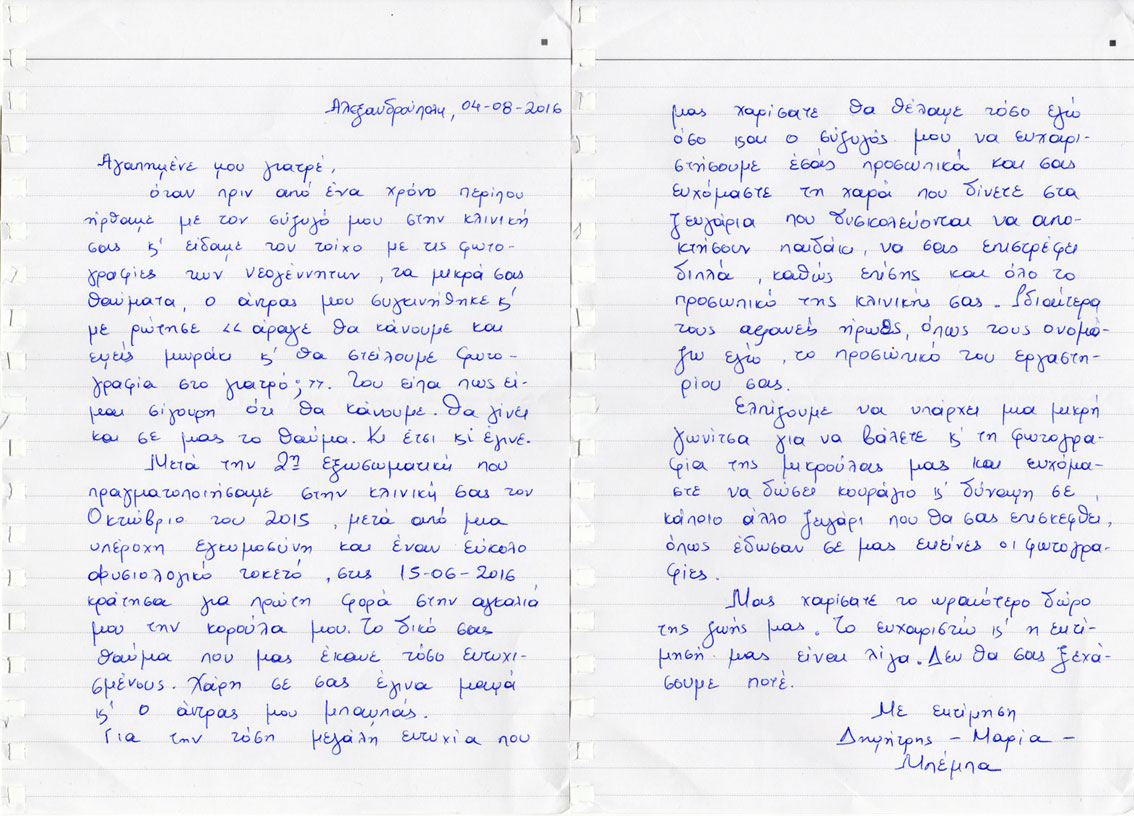 Αλεξανδρούπολη, 04-08-2016
Αγαπημένε μου γιατρέ,
όταν πριν από ένα χρόνο περίπου
ήρθαμε με τον σύζυγό μου στην κλινική
σας κ' είδαμε τον τοίχο με τις φωτο-
γραφίες των νεογέννητων, τα μικρά σας
θαύματα, ο άντρας μου συγκινήθηκε κ'
με ρώτησε << άραγε θα κάνουμε και
εμείς μωράκι κ' θα στείλουμε φωτο-
γραφία στο γιατρό; >>. Του είπα πως εί-
μαι σίγουρη ότι θα κάνουμε. Θα γίνει
και σε μας το θαύμα. Κι έτσι κι έγινε.
Μετά την 2η εξωσωματική που
πραγματοποιήσαμε στην κλινική σας τον
Οκτώβριο του 2015, μετά από μια
υπέροχη εγκυμοσύνη και έναν εύκολο
φυσιολογικό τοκετό, στις 15-06-2016
κράτησα για πρώτη φορά στην αγκαλιά
μου την κορούλα μου. Το δικό σας
θαύμα που μας έκανε τόσο ευτυχι-
σμένους. Χάρη σε σας έγινα μαμά
κ' ο άντρας μου μπαμπάς.
Για την τόση μεγάλη ευτυχία που
μας χαρίσατε θα θέλαμε τόσο εγώ
όσο και ο σύζυγός μου, να ευχαρι-
στήσουμε εσάς προσωπικά και σας
ευχόμαστε τη χαρά που δίνετε στα
ζευγάρια που δυσκολεύονται να απο-
κτήσουν παιδάκι, να σας επιστρέφει
διπλά, καθώς επίσης και όλο το
προσωπικό της κλινικής σας. Ιδιαίτερα
τους αφανείς ήρωες, όπως τους ονομά-
ζω εγώ, το προσωπικό του εργαστη-
ρίου σας.
Ελπίζουμε να υπάρχει μια μικρή
γωνίτσα για να βάλετε κ' τη φωτογρα-
φία της μικρούλας μας και ευχόμα-
στε να δώσει κουράγιο κ' δύναμη σε
κάποιο άλλο ζευγάρι που θα σας επισκεφθεί,
όπως έδωσαν σε μας εκείνες οι φωτογρα-
φίες.
Μας χαρίσατε το ωραιότερο δώρο
της ζωής μας. Το ευχαριστώ κ' η εκτί-
μησή μας είναι λίγα. Δεν θα σας ξεχά-
σουμε ποτέ.
Με εκτίμηση
Δημήτρης - Μαρία -
Μπέμπα